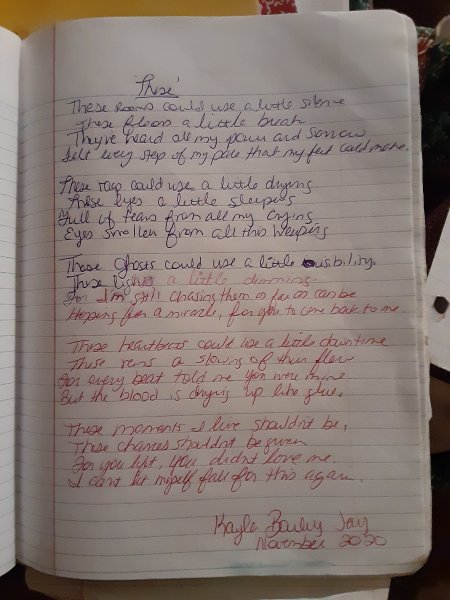 These
These rooms could use a little silence
These floors a little break
They've heard all my pain and sorrow
felt every step of my pace that my feet could make.
These rags could use a little drying
These eyes a little sleeping
Full of tears from all my crying
Eyes swollen from all this weeping
These ghosts could use a little visibility.
These lights a little dimming.
For I'm still chasing them as far as can be
Hoping for a miracle, for you to come back to me.
These heartbeats could use a little downtime
These veins a slowing of their flow
For every beat told me you were mine
But the blood is drying up like glue.
These moments I live shouldn't be,
These chances shouldn't be given
For you left, you didn't love me.
I can't let myself fall for this again.
Kayla Bailey Jay
November 2020